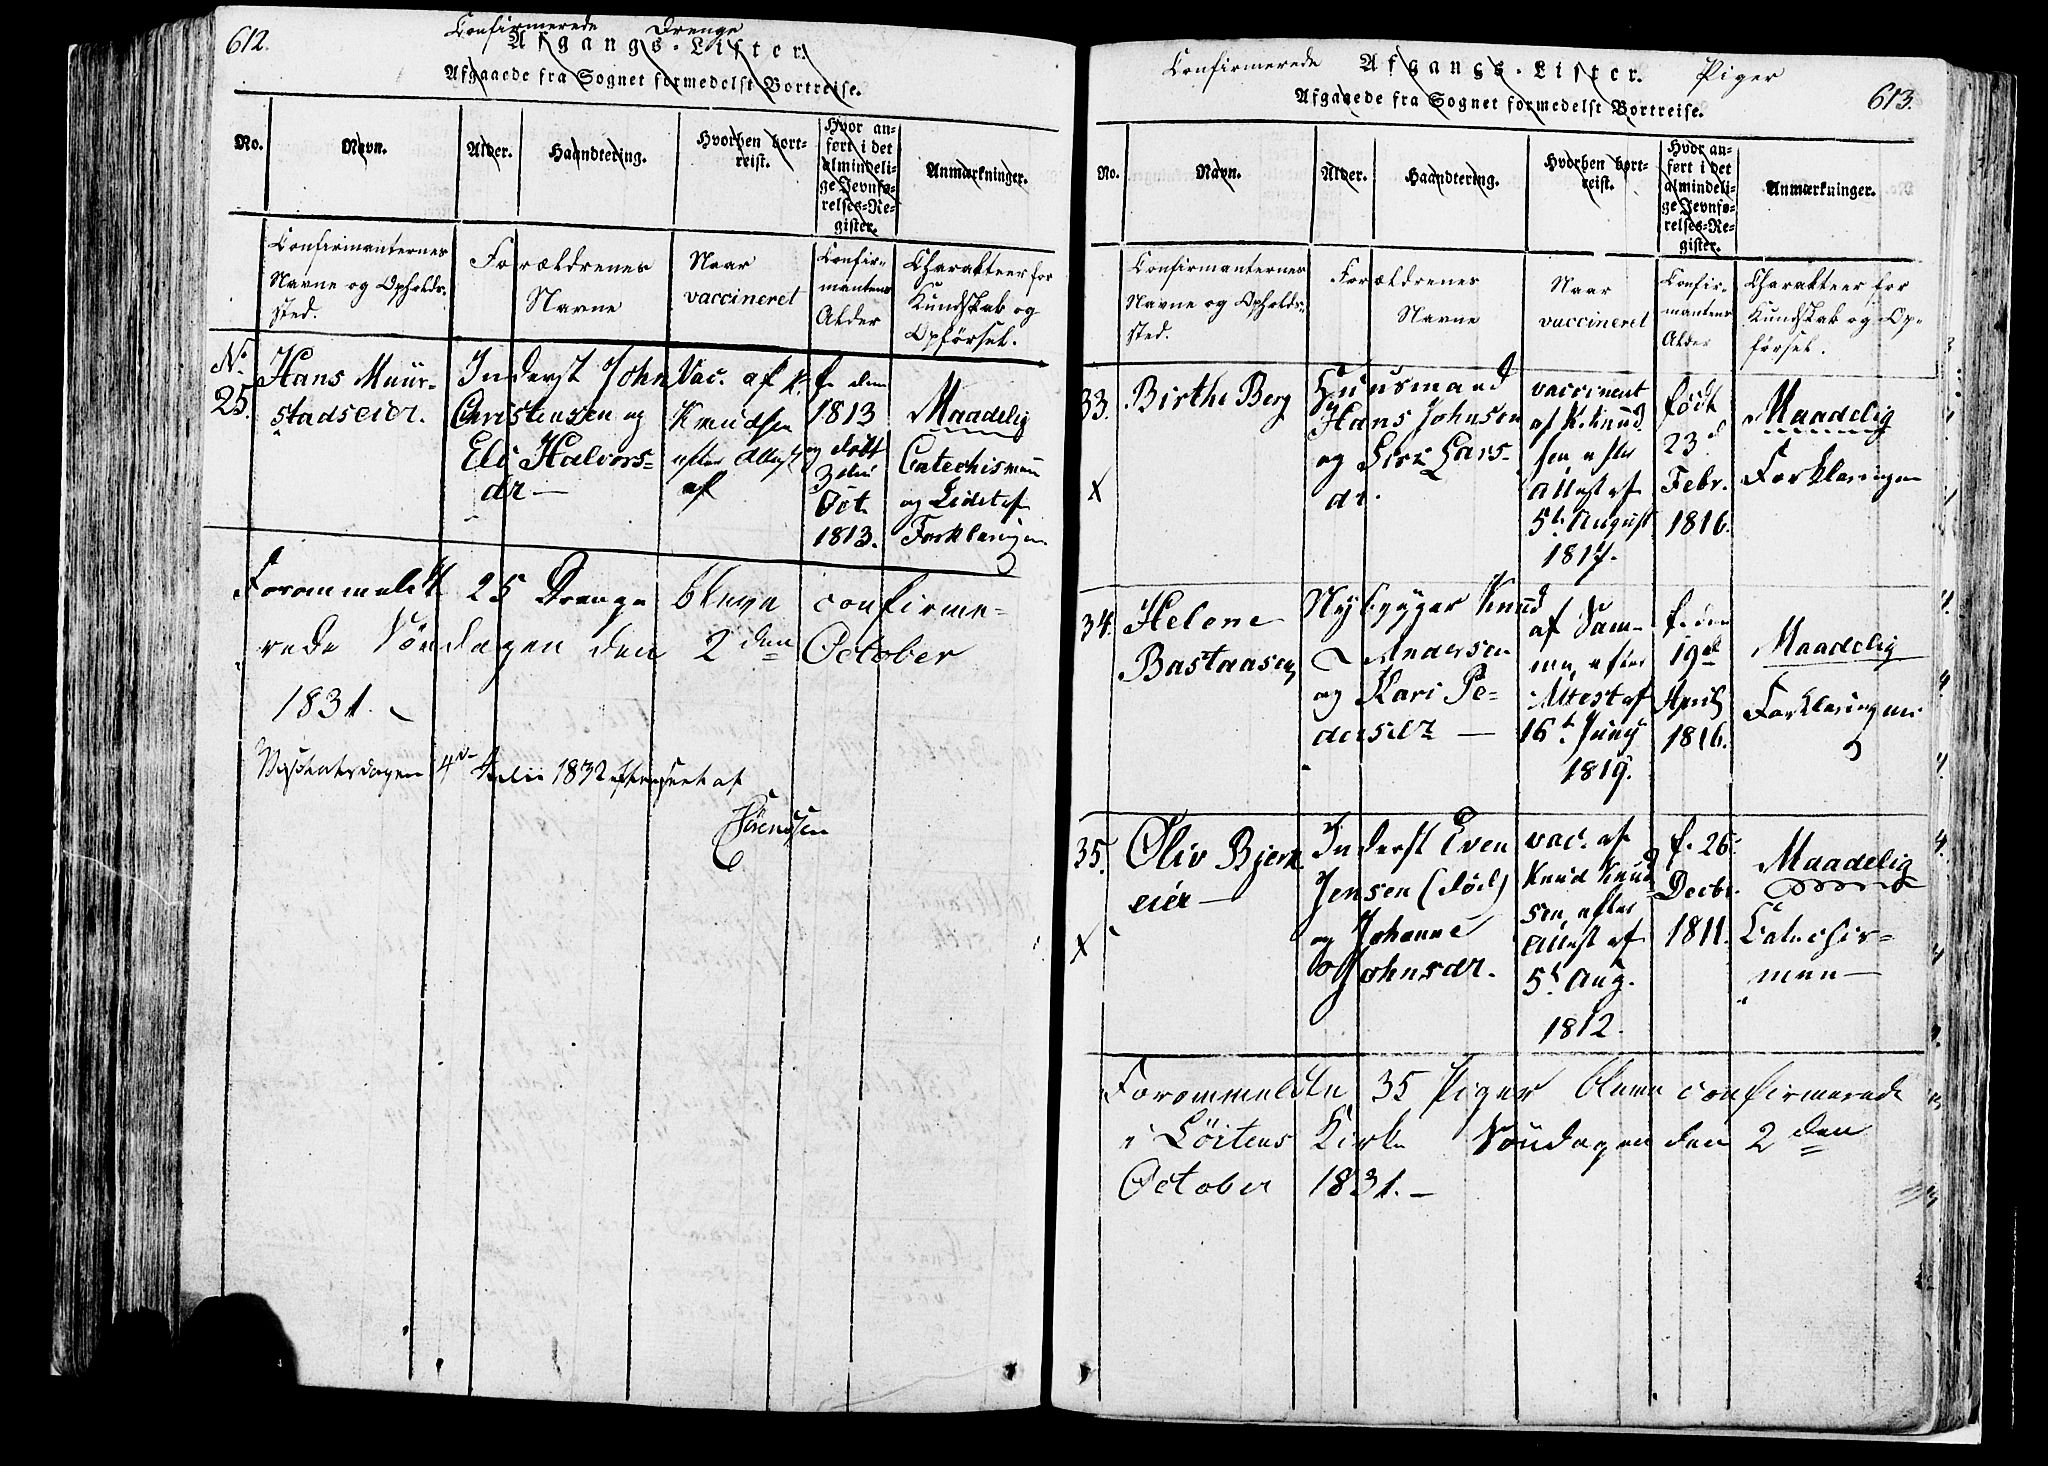 612.
Confirmerede Drenge
Afgangs-Lister.
Afgaaede fra Sognet formedelst Bortreise.
No.
Navn.
Alder.
Haandtering.
Hvorhen bort-
reist.
Hvor an-
ført i det
almindeli-
ge Jevnfø-
relses-Re-
gister.
Anmærkninger.
Confirmanternes
Navne og Opholds-
sted.
Forældrenes
Navne
Naar
vaccineret
Confir-
mantens
Alder
Charakteer for
Kundskab og
Opførsel.
No
25.
Hans Muur-
stadseier.
Inderst John
Christensen og
Eli Halvors-
dr —
Vac. af K.
Knudsen
efter Attest
af
f. den
1813
og døbt
3die
Oct.
1813.
Maadelig
Catechismen
og Lidet af
Forklaringen
Forommeldte 25 Drenge bleve confirme-
rede Søndagen den 2den October
1831.
Visitatsdagen 4de Julii 1832 efterseet af
Sörenssen
Confirmerede
Afgangs-Lister.
Piger
613.
Afgaaede fra Sognet formedelst Bortreise.
No.
Navn.
Alder.
Haandtering.
Hvorhen bort-
reist.
Hvor an-
ført i det
almindeli-
ge Jevnfø-
relses-Re-
gister.
Anmærkninger.
Confirmanternes
Navne og Opholds-
sted.
Forældrenes
Navne
Naar
vaccineret
Confir-
mantens
Alder
Charakteer for
Kundskab og Op-
førsel.
33.
X
Birthe Berg
Huusmand
Hans Johnsen
og Lise Lars-
dr.
vaccineret
af K. Knud-
sen efter
Attest af
5t August
1817.
født
23d
Febr.
1816.
Maadelig
Forklaringen
34.
Helene
Bastaasen
Nybygger Knud
Andersen
og Kari Pe-
dersdr —
af Sam-
me, efter
Attest af
16t Juny
1819.
f. den
19de
April
1816.
Maadelig
Forklaringen
35.
X
Oliv Bjerk
eier —
Inderst Even
Jensen (død)
og Johanne
Johnsdr.
vac. af
Knud Knud
sen, efter
Attest af
5t Aug.
1812.
f. 26
Decbr.
1811.
Maadelig
Catechis-
men —
Forommeldte 35 Piger bleve confirmerede
i Löitens Kirke Söndagen den 2den
October 1831. —